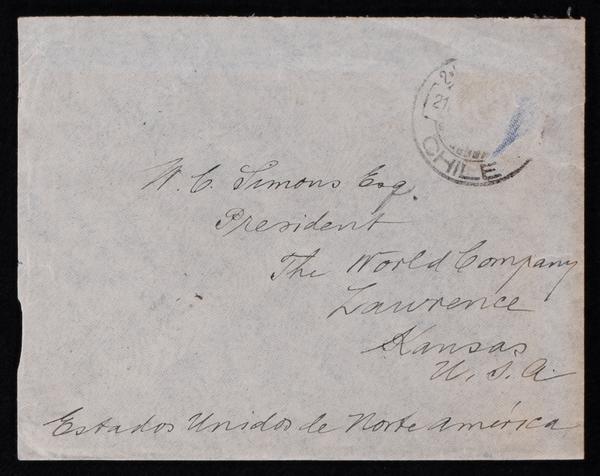 21
CHILE
W. C. Simons Esq.
President
The World Company
Lawrence
Kansas
U. S. A.
Estados Unidos de Norte América